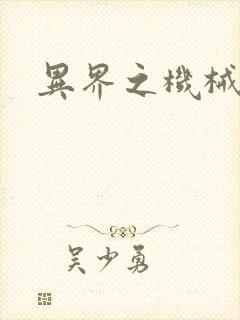 異界之機械
吳少勇